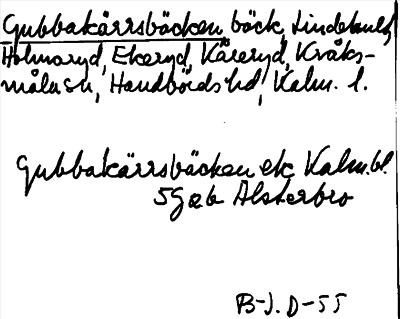 Gubbakärrsbäcken bäck, Lindehult,
Holmaryd, Ekeryd, Kåreryd, Kråks-
måla sn, Handbörds hd, Kalm. l.
Gubbakärrsbäcken ek Kalm.bl.
5G æb Alsterbro
B-J. D-55